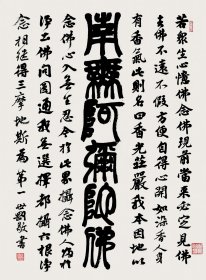 若衆生心憶佛念佛現前當來必定見佛
去佛不遠不假方便自得心開如染香人身
有香氣此則名曰香光莊嚴我本因地以
南無阿彌陀佛
念佛心入無生忍今於此界攝念佛人歸於
淨土佛問圓通我無選擇都攝六根淨
念相繼得三摩地斯為第一 敬書